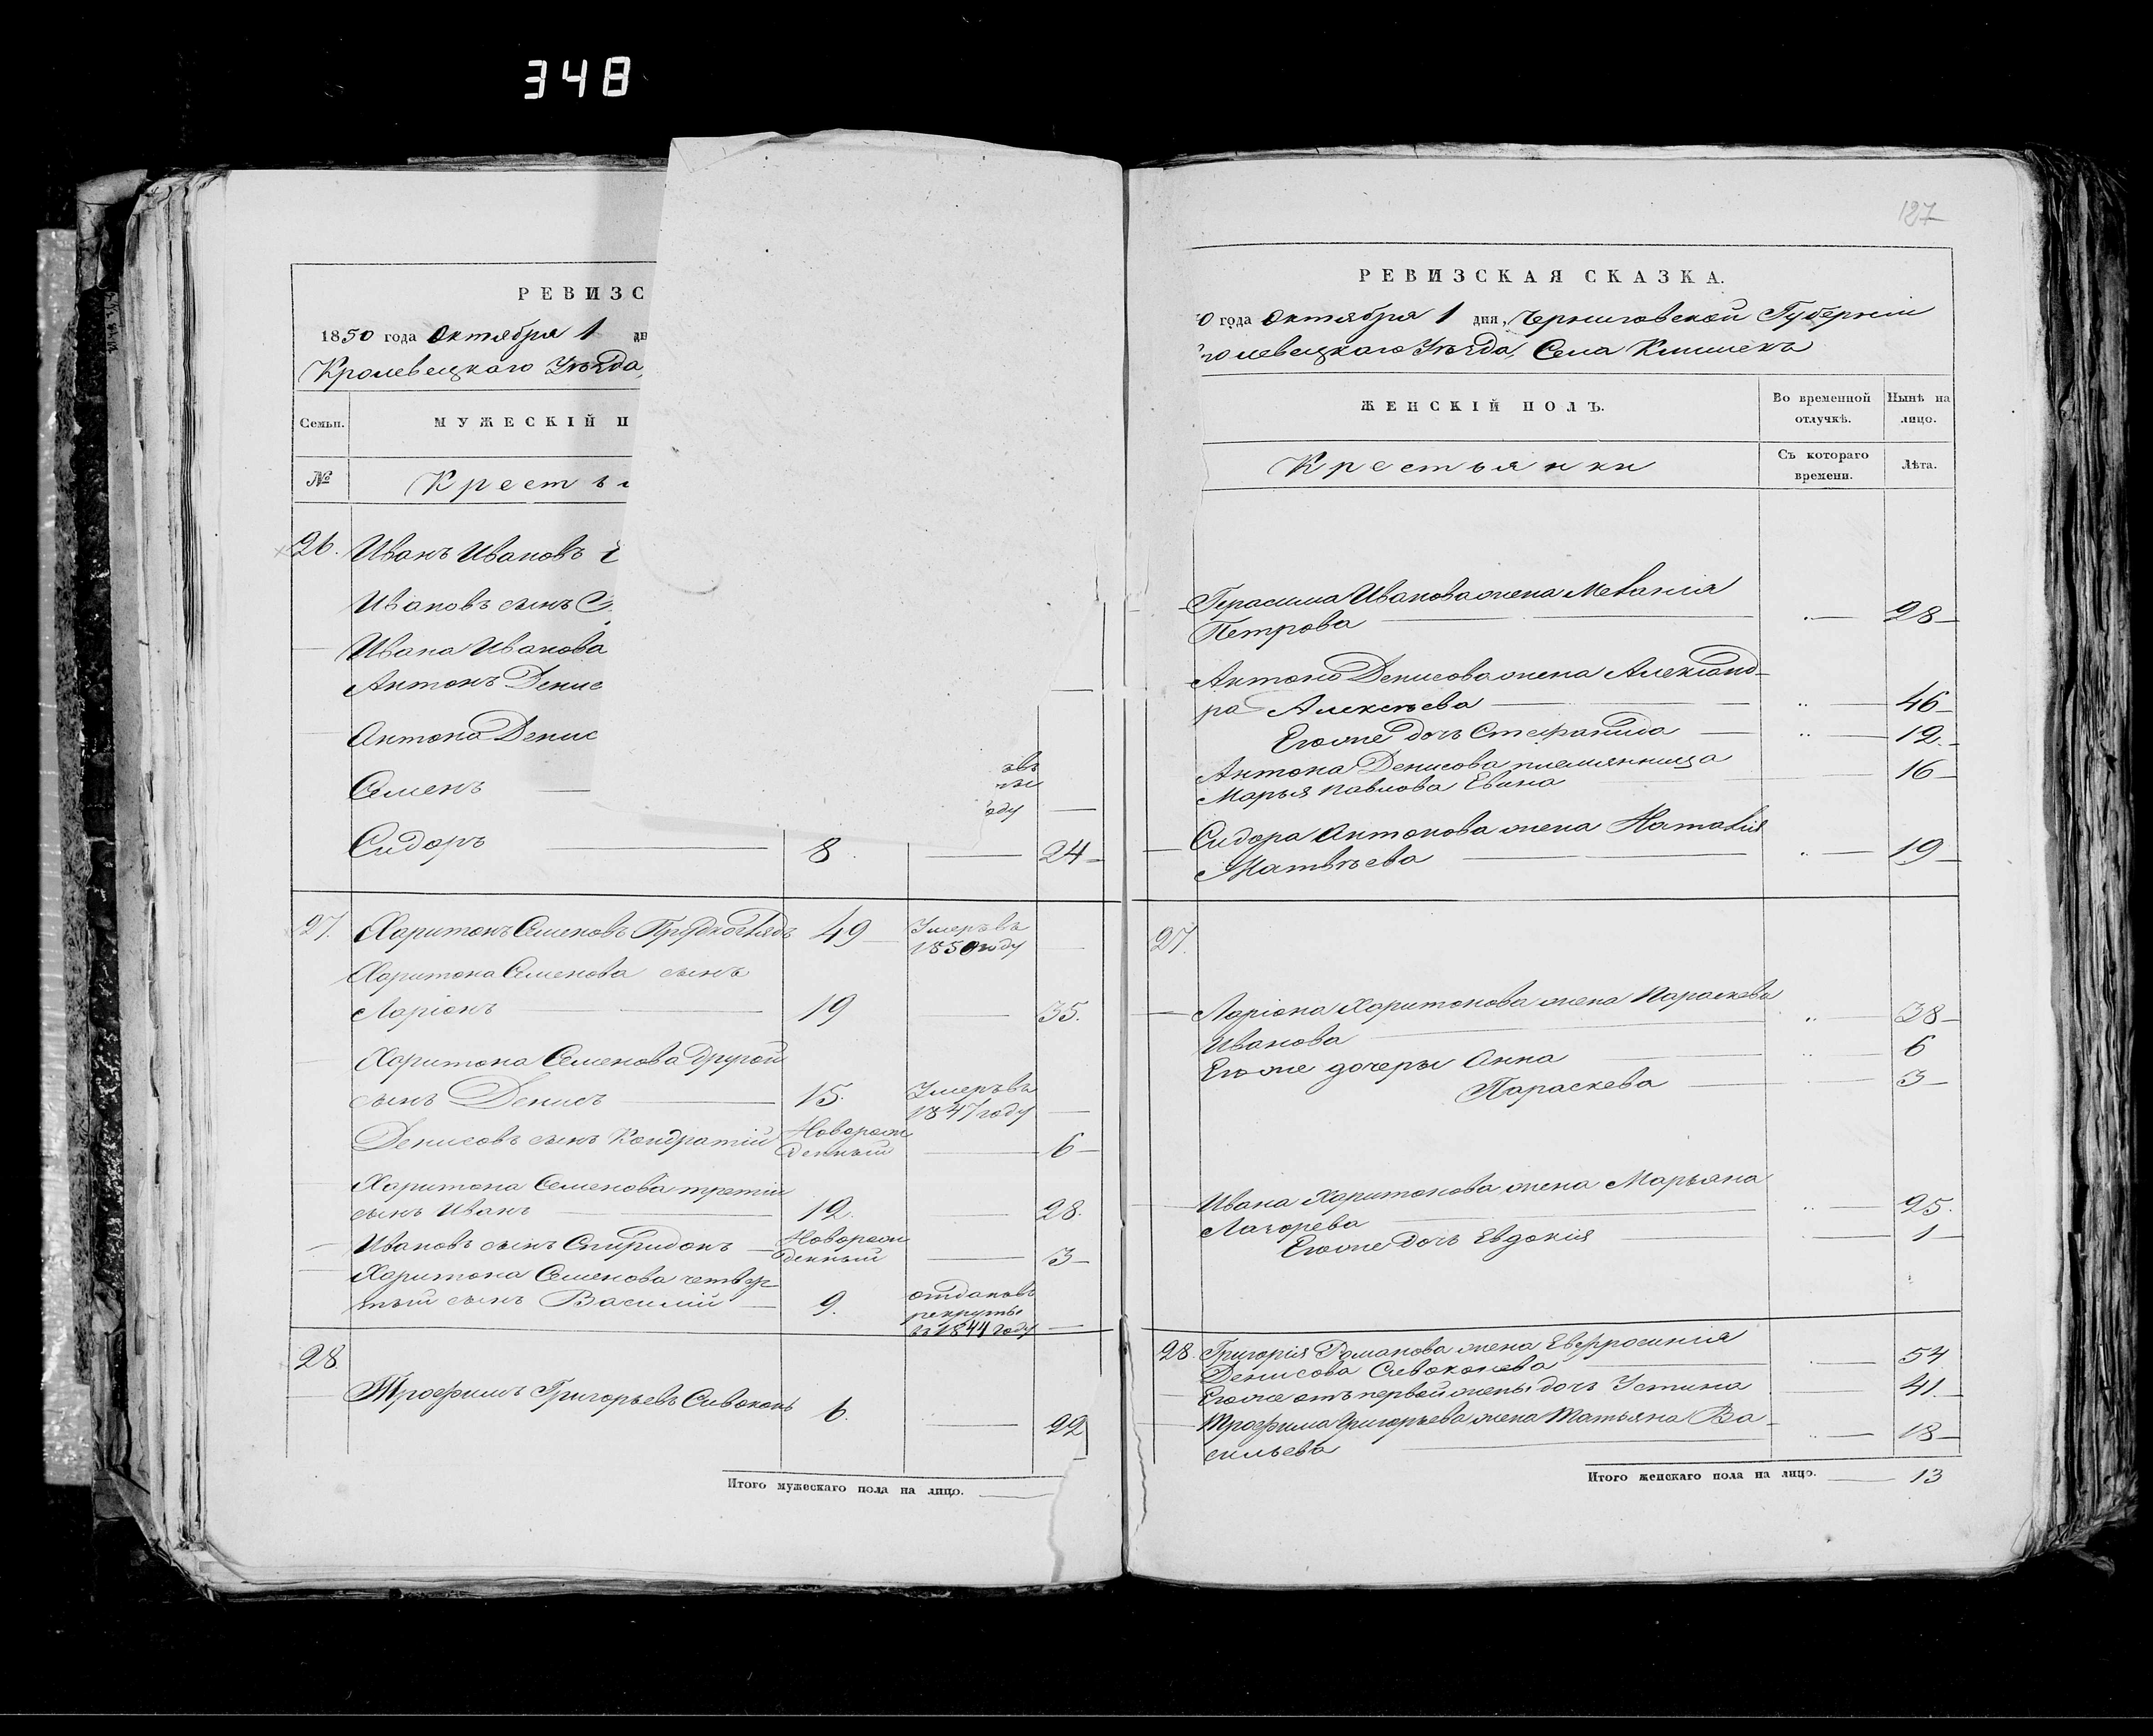 348
РЕВИЗС
1850 года Октября 1 дн
Кролевецкаго Уѣзда,
Семьи.
МУЖЕСКІЙ П
№
Кресть
26. Иванъ Ивановъ
Ивановъ сынъ
Ивана Иванова
Антонъ Денис
Антона Денис
Семенъ
оду
Сидоръ 8. 24
27. Харитонъ Семеновъ 49 Умеръ въ
1850 году
Харитона Семенова сынъ
Ларіонъ 19 35.
Харитона Семенова другой
сынъ Денисъ 15. Умеръ въ
1847 году
Денисовъ сынъ Кондратій Новорож
денный 6
Харитона Семенова третій
сынъ Иванъ 12. 28.
Ивановъ сынъ Спиридонъ Новорож
денный 3
Харитона Семенова четвер-
тый сынъ Василій 9. отданъ въ
рекруты
въ 1844 году
28
Трофимъ Григорьевъ Сивоконь 6. 22
Итого мужескаго пола на лицо.
127
РЕВИЗСКАЯ СКАЗКА.
0 года Октября 1 дня, Черниговской Губерніи
ролевецкаго Уѣзда, Села Клишекъ
ЖЕНСКІЙ ПОЛЪ.
Во временной отлучкѣ.
Нынѣ на лицо.
Крестьянки
Съ котораго времени.
Лѣта.
Герасима Иванова жена Меланія
Петрова 28
Антона Денисова жена Александ-
ра Алексѣева 46
Его же дочь Стефанида 12
Антона Денисова племянница 16
Марья Павлова
Сидора Антонова жена Наталія
Матвѣева 19
27.
Ларіона Харитонова жена Параскева
Иванова 38
Его же дочеры Анна 6
Параскева 3
Ивана Харитонова жена Марьяна
Лазорева 25.
Его же дочь Евдокія 1
28. Григорія Романова жена Евфросинія
Денисова Сивоконева 54
Его же отъ первой жены дочь Устина 41.
Трофима Григорьева жена Татьяна Ва-
сильева 18
Итого женскаго пола на лицо. 13